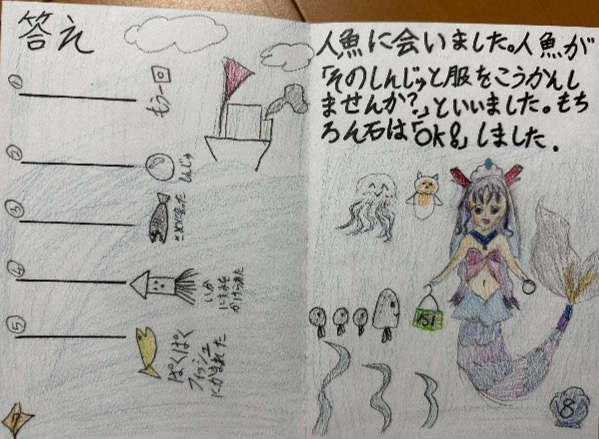 答え
①
もう一回
②
しんじゅ
③
④
いか
にすみを
かけられた
⑤
ぱくぱく
フィッシュ
にかまれた
7
人魚に会いました。人魚が
「そのしんじゅと服をこうかんし
ませんか?」といいました。もち
ろん石は「OK」しました.
151
8